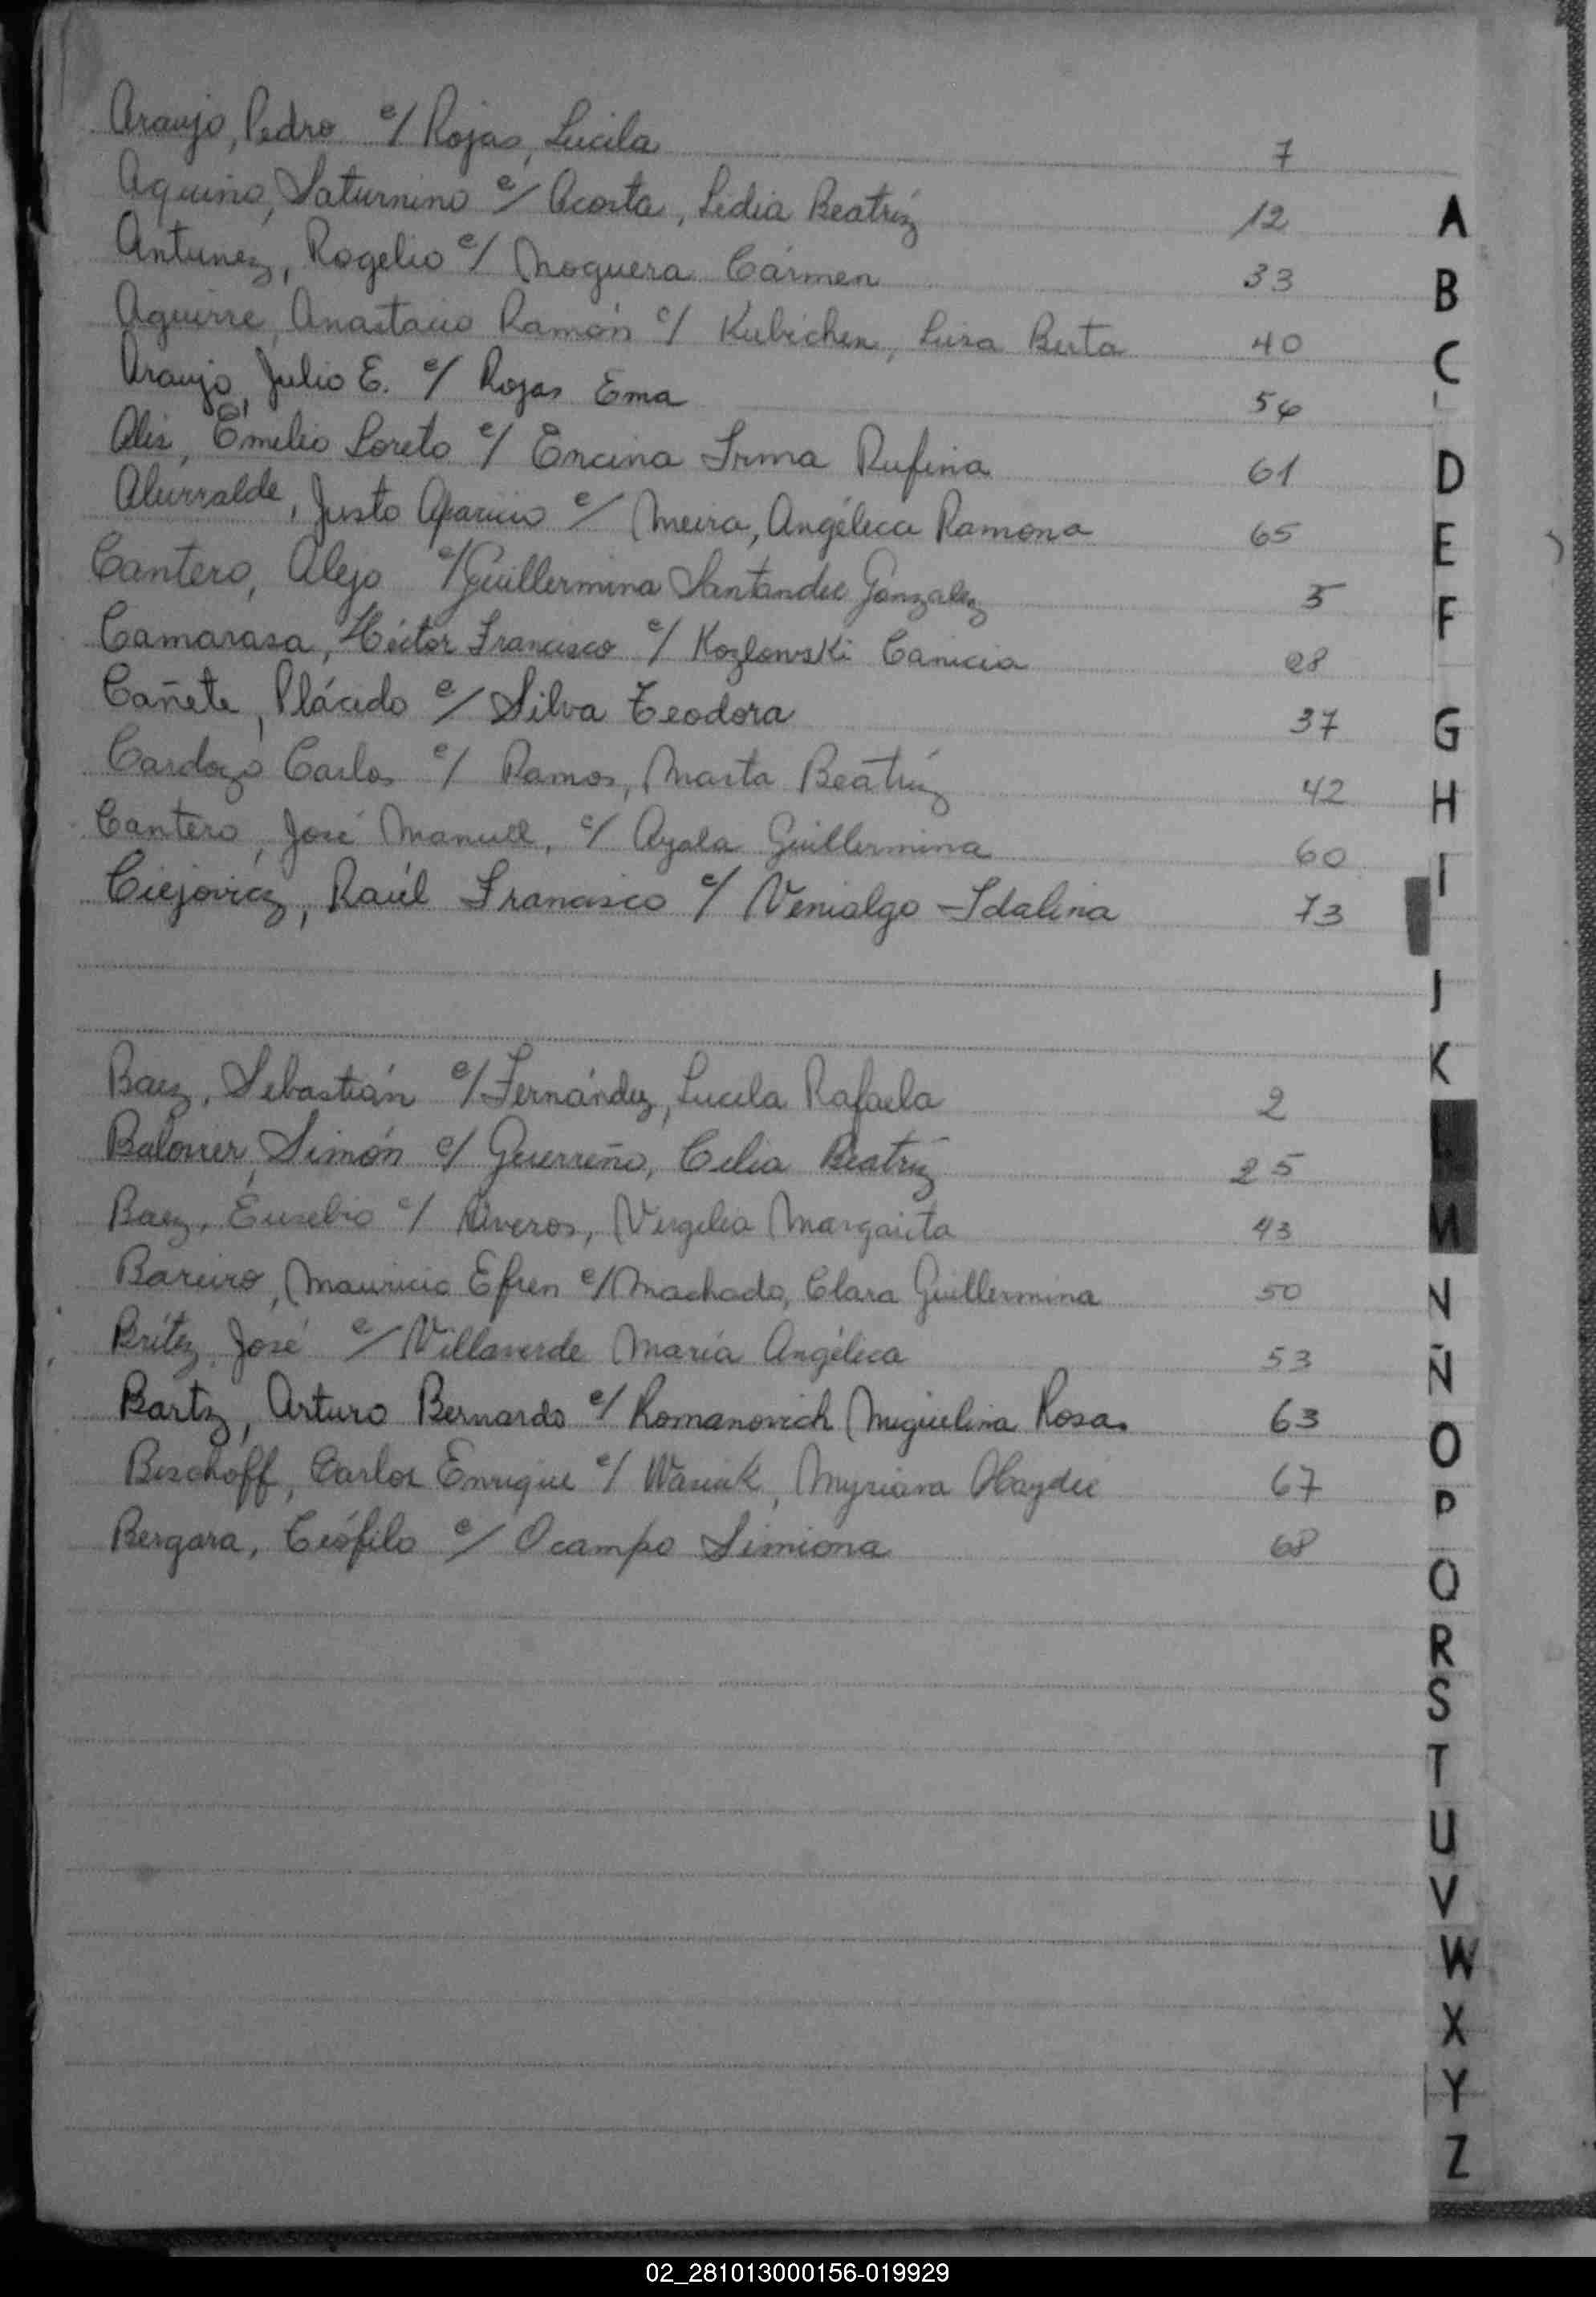 Araujo, Pedro c/ Rojas, Lucila 7
Aquino, Saturnino c/ Acosta, Lidia Beatríz 12
Antunez, Rogelio c/ Noguera Cármen 33
Aguirre, Anastacio Ramón c/ Kubichen, Luisa Berta 40
Araujo, Julio E. c/ Rojas Ema 56
Alis, Emilio Loreto c/ Encina Irma Rufina 61
Alurralde, Justo Aparicio c/ Meira, Angélica Ramona 65
Cantero, Alejo c/ Guillermina Santander Gonzalez 5
Camarasa, Héctor Francisco c/ Kozlowski Canicia 28
Cañete, Plácido c/ Silva Teodora 37
Cardozo Carlos c/ Ramos, Marta Beatríz 42
Cantero, José Manuel, c/ Ayala Guillermina 60
Ciejovicz, Raúl Francisco c/ Venialgo Idalina 73
Baez, Sebastián c/ Fernández, Lucila Rafaela 2
Simón c/ Guerreño, Celia Beatríz 25
Baez, Eusebio c/ Riveros, Virgilia Margarita 43
Bareiro, Mauricio Efren c/ Machado, Clara Guillermina 50
Brítez, José c/ Villaverde María Angélica 53
Bartz, Arturo Bernardo c/ Romanovich Miguelina Rosa. 63
Bischoff, Carlos Enrique c/ Wasiuk, Myriam Haydée 67
Bergara, Teófilo c/ Ocampo Simiona 68
A
B
C
D
E
F
G
H
I
J
K
L
M
N
Ñ
O
P
Q
R
S
T
U
V
W
X
Y
Z
02_281013000156-019929